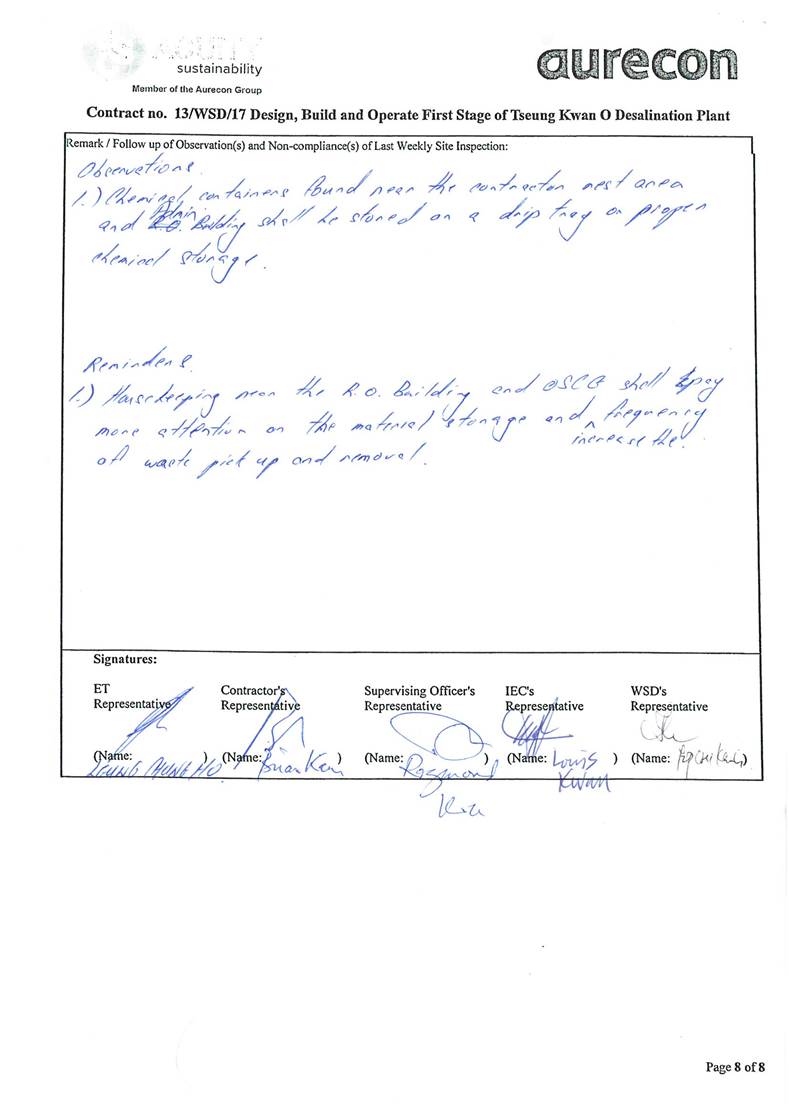 ACUITY
sustainability
Member of the Aurecon Group
aurecon
Contract no. 13/WSD/17 Design, Build and Operate First Stage of Tseung Kwan O Desalination Plant
Remark / Follow up of Observation(s) and Non-compliance(s) of Last Weekly Site Inspection:
Observations.
1.) Chemical containers found near the contractor rest area
and Admin Building shall be stored on a drip tray or proper
chemical storage.
Reminders.
1.) Housekeeping near the R.O. Building and OSCG shall pay
more attention on the material storage and increase the frequency
of waste pick up and removal.
Signatures:
ET Representative
Contractor's Representative
Supervising Officer's Representative
IEC's Representative
WSD's Representative
(Name: LEUNG CHUNG HO )
(Name: Brian Kam )
(Name: Raymond )
(Name: Louis Kwan )
(Name: )
Page 8 of 8